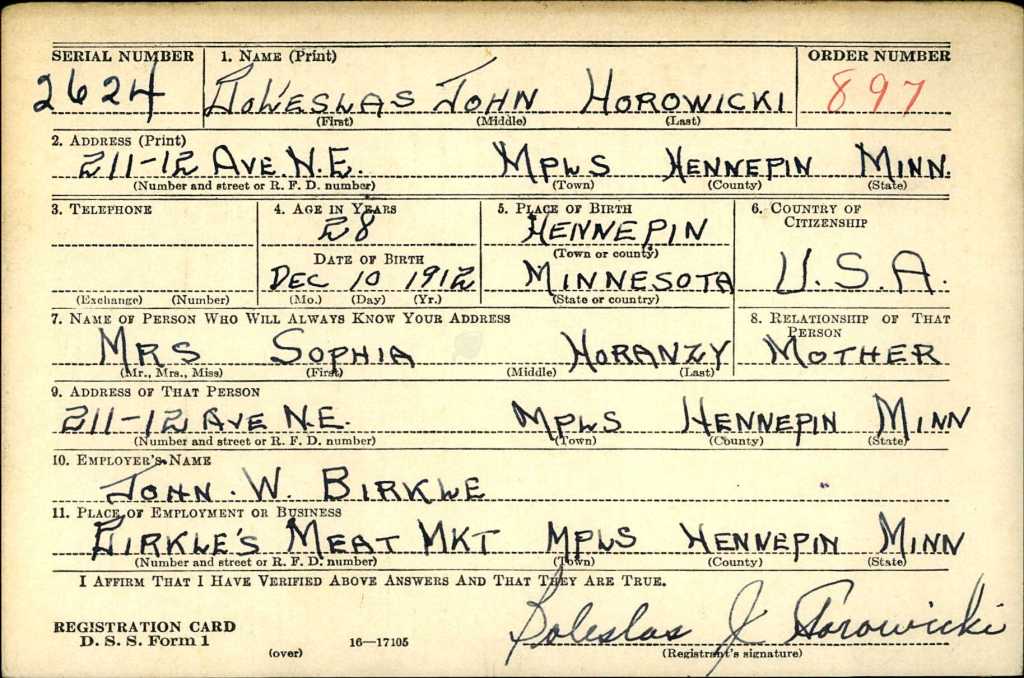 SERIAL NUMBER 1. NAME (Print) ORDER NUMBER
2624 BOLESLAS JOHN HOROWICKI 897
(First) (Middle) (Last)
2. ADDRESS (Print)
211-12 AVE. N.E. MPLS HENNEPIN MINN.
(Number and street or R. F. D. number) (Town) (County) (State)
3. TELEPHONE 4. AGE IN YEARS 5. PLACE OF BIRTH 6. COUNTRY OF CITIZENSHIP
28 HENNEPIN
DATE OF BIRTH (Town or county)
DEC 10 1912 MINNESOTA U.S.A.
(Exchange) (Number) (Mo.) (Day) (Yr.) (State or country)
7. NAME OF PERSON WHO WILL ALWAYS KNOW YOUR ADDRESS 8. RELATIONSHIP OF THAT PERSON
MRS SOPHIA HORANZY MOTHER
(Mr., Mrs., Miss) (First) (Middle) (Last)
9. ADDRESS OF THAT PERSON
211-12 AVE N.E. MPLS HENNEPIN MINN
(Number and street or R. F. D. number) (Town) (County) (State)
10. EMPLOYER'S NAME
JOHN. W. BIRKLE
11. PLACE OF EMPLOYMENT OR BUSINESS
BIRKLE'S MEAT MKT MPLS HENNEPIN MINN
(Number and street or R. F. D. number) (Town) (County) (State)
I AFFIRM THAT I HAVE VERIFIED ABOVE ANSWERS AND THAT THEY ARE TRUE.
Boleslas J Horowicki
REGISTRATION CARD
D. S. S. Form 1 16—17105 (Registrant's signature)
(over)